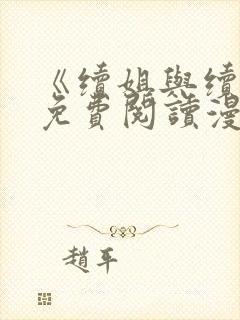 《續姐與續
免費閱讀漫
趙平